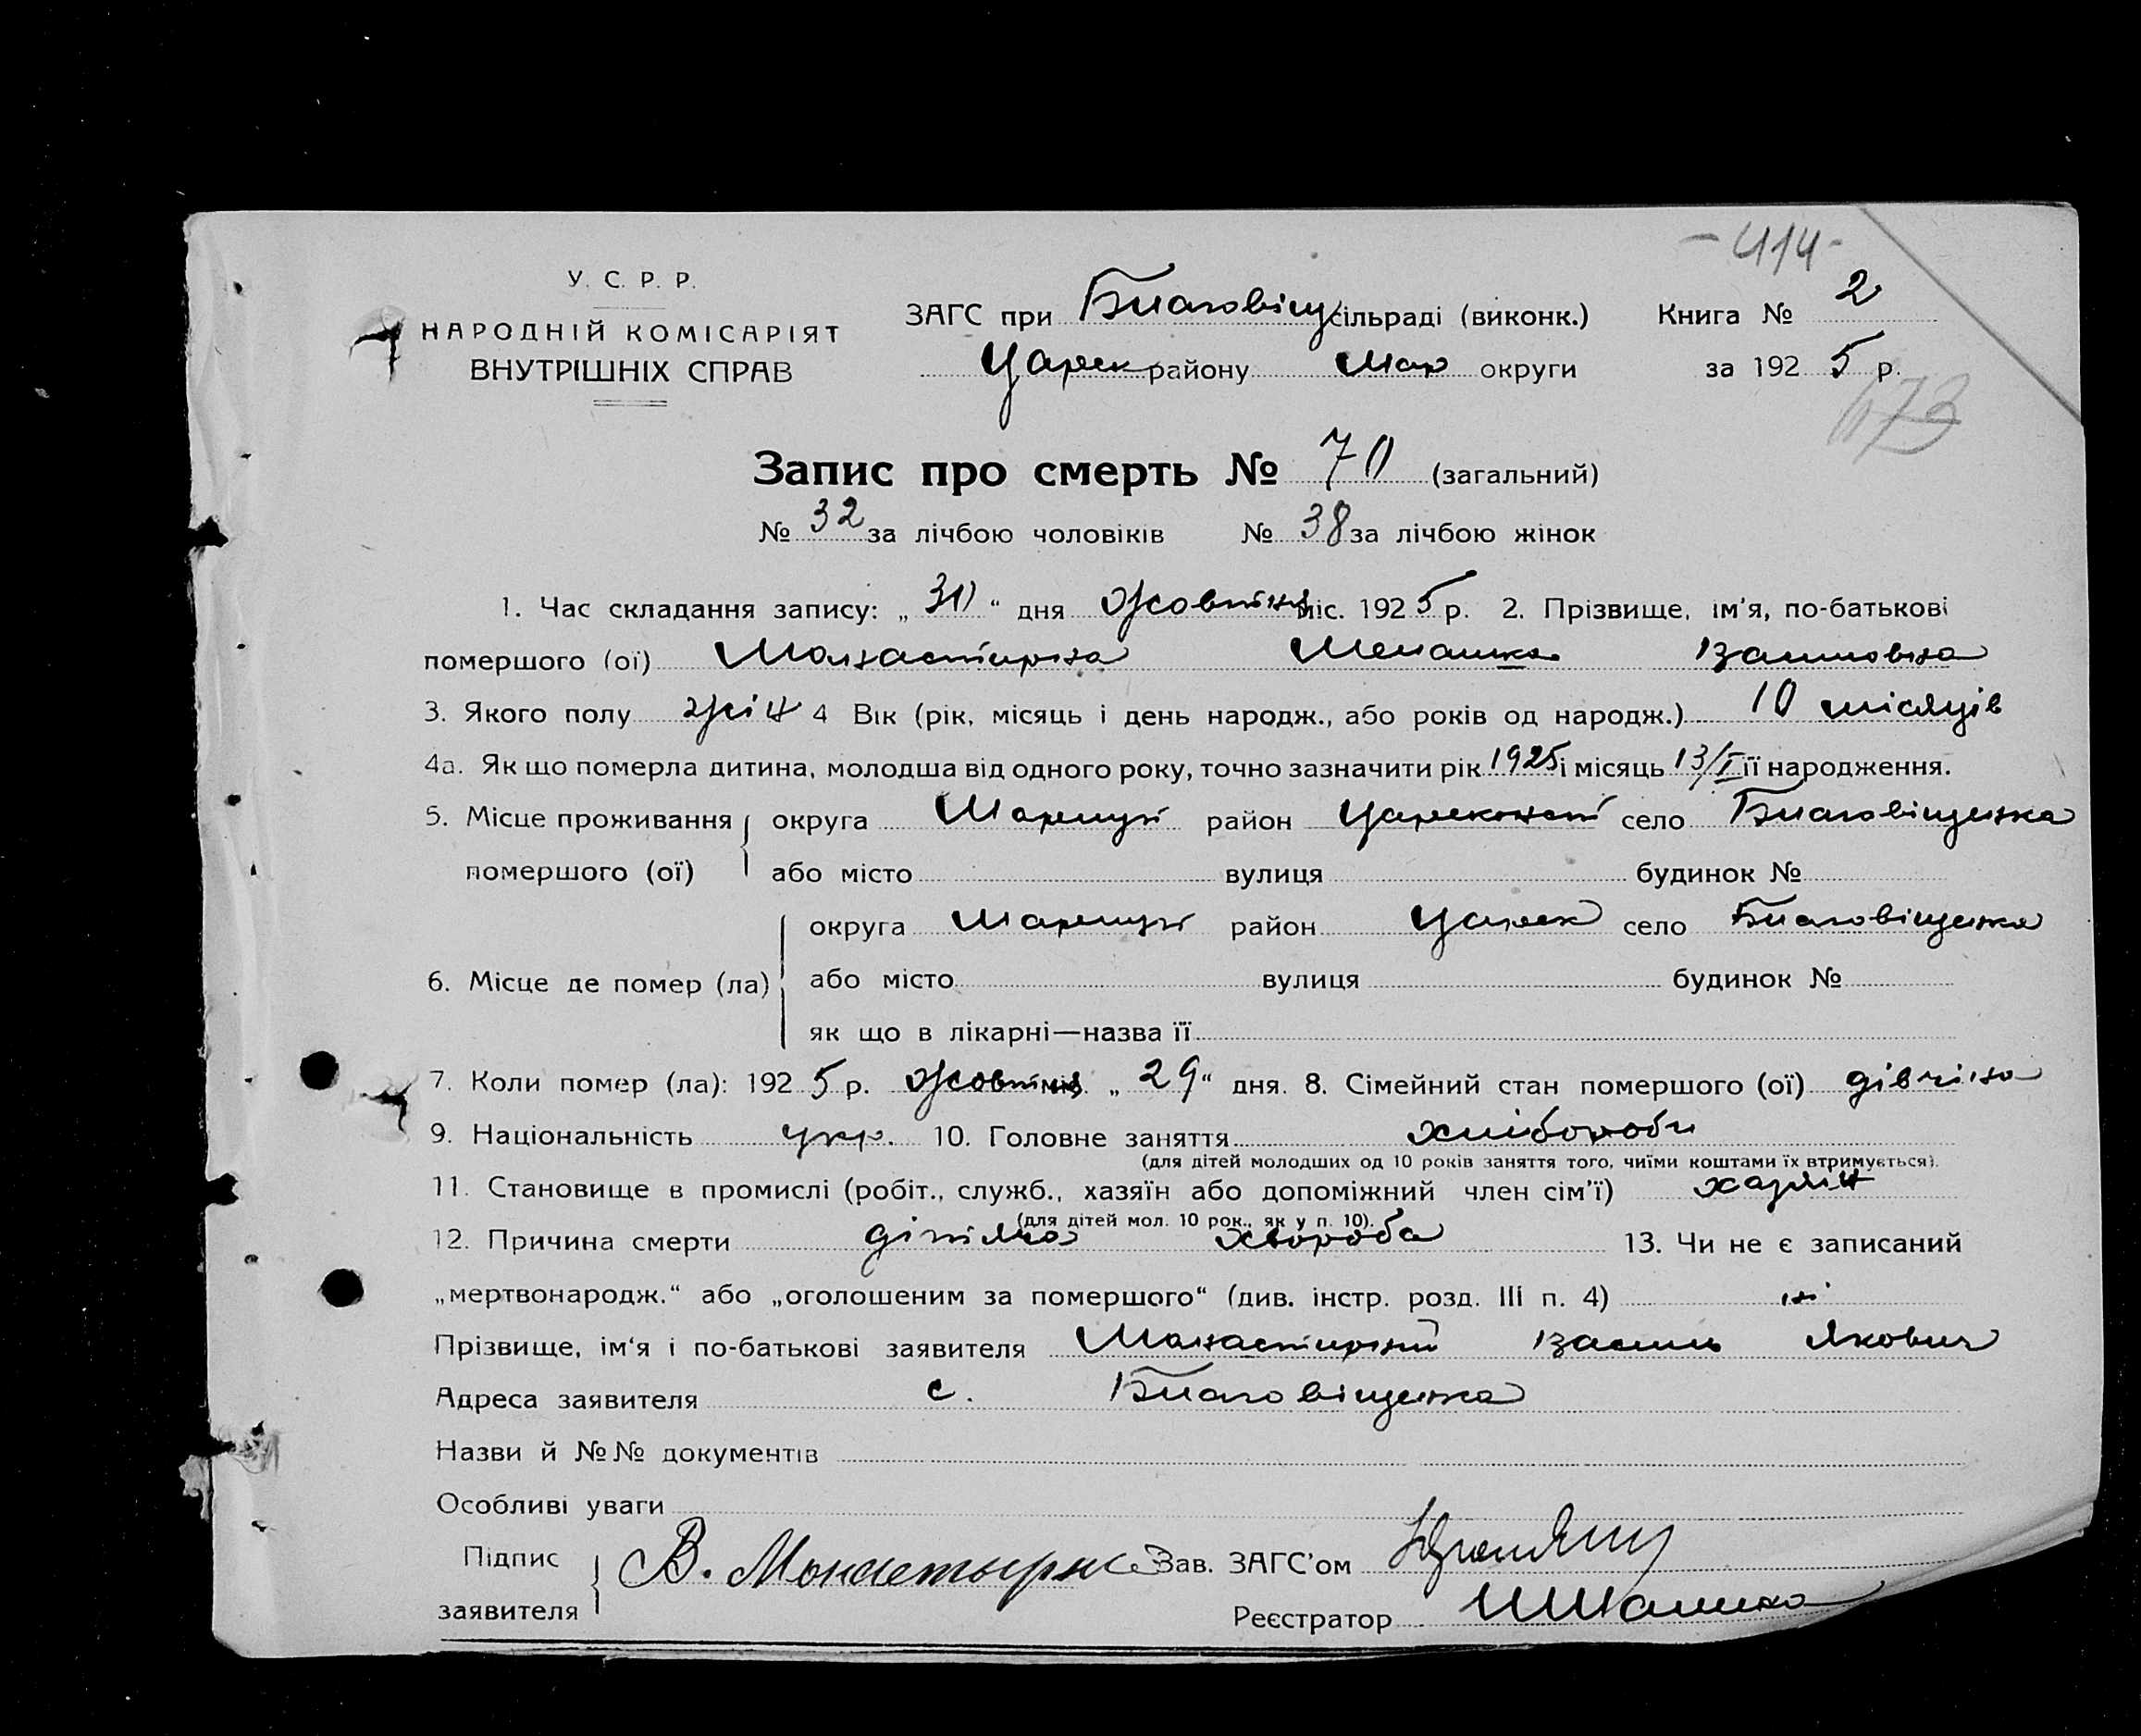 - 414 -
У. С. Р. Р.
НАРОДНІЙ КОМІСАРІЯТ
ВНУТРІШНІХ СПРАВ
ЗАГС при Благовіщ сільраді (виконк.) Книга № 2
Царек району Мар округи за 1925 р.
173
Запис про смерть № 70 (загальний)
№ 32 за лічбою чоловіків № 38 за лічбою жінок
1. Час складання запису: „30“ дня Жовтня міс. 1925 р. 2. Прізвище, ім'я, по-батькові
помершого (ої) Манастирна Меланка Василовна
3. Якого полу жін 4 Вік (рік, місяць і день народж., або років од народж.) 10 місяців
4а. Як що померла дитина, молодша від одного року, точно зазначити рік 1925 і місяць 13/I її народження.
5. Місце проживання округа Маріуп район село Благовіщенка
помершого (ої) або місто вулиця будинок №
округа Маріуп район Царек село Благовіщенка
6. Місце де помер (ла) або місто вулиця будинок №
як що в лікарні—назва її
7. Коли помер (ла): 1925 р. Жовтня міс. „29“ дня. 8. Сімейний стан помершого (ої) дівчина
9. Національність укр. 10. Головне заняття хлібороби
(для дітей молодших од 10 років заняття того, чиїми коштами їх втримується).
11. Становище в промислі (робіт., служб., хазяїн або допоміжний член сім'ї) хазяїн
(для дітей мол. 10 рок., як у п. 10).
12. Причина смерти дітяча хвороба 13. Чи не є записаний
„мертвонародж.“ або „оголошеним за помершого“ (див. інстр. розд. III п. 4) ні
Прізвище, ім'я і по-батькові заявителя Манастирний Василь Якович
Адреса заявителя с. Благовіщенка
Назви й №№ документів
Особливі уваги
Підпис
заявителя В. Монастырн Зав. ЗАГС'ом
Реєстратор